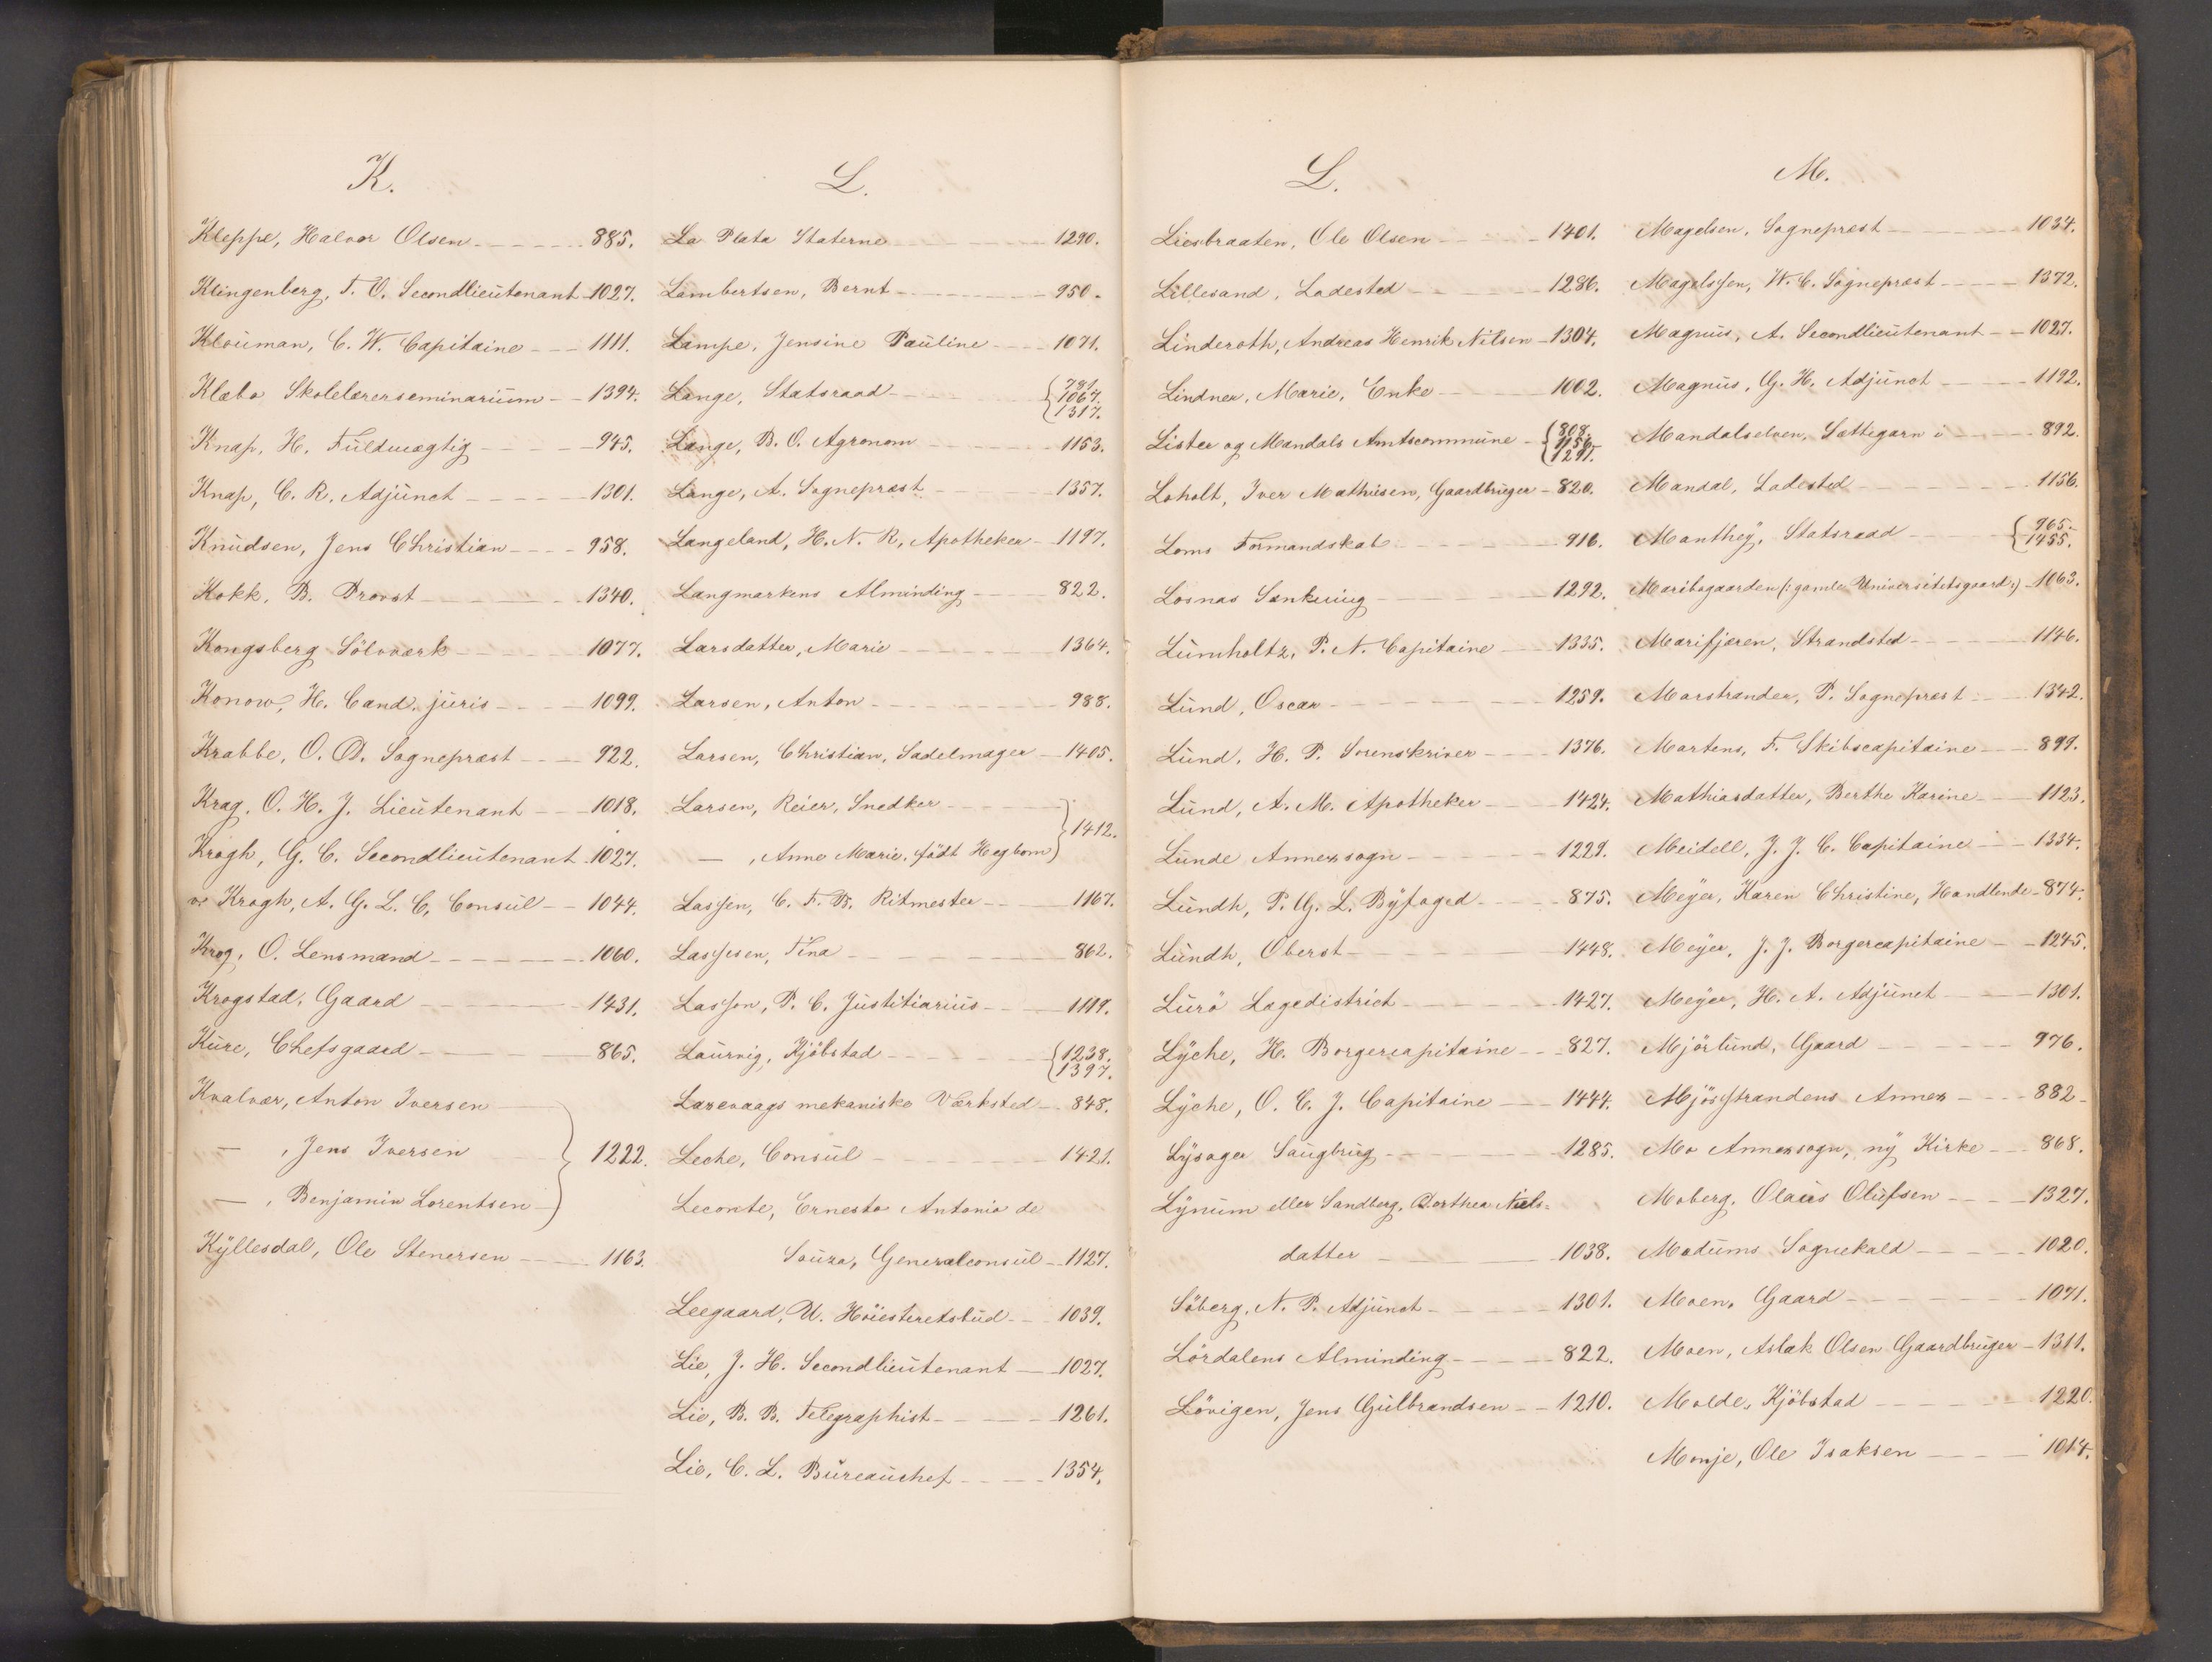 K.
Kleppe, Halvor Olsen 885.
Klingenberg, T. O. Secondlieutenant 1027.
Klouman, C. W. Capitaine 1111.
Klæbo Skolelærerseminarium 1394.
Knap, H. Fuldmægtig 945.
Knap, C. R. Adjunct 1301.
Knudsen, Jens Christian 958.
Kokk, B. Provst 1340.
Kongsberg Sölvværk 1077.
Konow, H. Cand. juris 1099.
Krabbe, O. D. Sognepræst 922.
Krag, O. H. J. Lieutenant 1018.
Krogh, G. C. Secondlieutenant 1027.
v. Krogh, A. G. L. C, Consul 1044.
Krog, O. Lensmand 1060.
Krogstad, Gaard 1431.
Kure, Chefsgaard 865.
Kvalvær, Anton Iversen
— , Jens Iversen 1222.
— , Benjamin Lorentsen
Kyllesdal, Ole Stenersen 1163.
L.
La Plata Staterne 1290.
Lambertsen, Bernt 950.
Lampe, Jensine Pauline 1071.
Lange, Statsraad 781. 1067. 1317.
Lange, B. O. Agronom 1153.
Lange, A. Sognepræst 1357.
Langeland, H. N. R, Apotheker 1197.
Langmarkens Alminding 822.
Larsdatter, Marie 1364.
Larsen, Anton 988.
Larsen, Christian, Sadelmager 1405.
Larsen, Reier, Snedker
— , Anne Marie, født Hegbom 1412.
Lassen, C. F. B. Ritmester 1167.
Lassesen, Tina 862.
Lasson, P. C. Justitiarius 1119.
Laurvig, Kjöbstad 1238. 1397.
Laxevaags mekaniske Værksted 848.
Leche, Consul 1421.
Leconte, Ernesto Antonio de
Souza, Generalconsul 1127.
Leegaard, U. Höiesteretsbud 1039.
Lie, J. H. Secondlieutenant 1027.
Lie, B. B. Telegraphist 1261.
Lie, C. L. Büreauchef 1354.
L.
Liesbraaten, Ole Olsen 1401.
Lillesand, Ladested 1286.
Linderoth, Andreas Henrik Nilsen 1304.
Lindner, Marie, Enke 1002.
Lister og Mandals Amtscommune 808. 1156. 1297.
Loholt, Iver Mathisen, Gaardbruger 820.
Loms Formandskab 916.
Losnas Sænkning 1292.
Lumholtz, P. N. Capitaine 1335.
Lund, Oscar 1259.
Lund, H. P. Sorenskriver 1376.
Lund, A. M. Apotheker 1424.
Lunde Annexsogn 1229.
Lundh, P. G. L. Byfoged 875.
Lundh, Oberst 1448.
Lurö Lægedistrict 1427.
Lyche, H. Borgercapitaine 827.
Lyche, O. C. J. Capitaine 1444.
Lysager Saugbrug 1285.
Lynum eller Sandberg, Dorthea Niels-
datter 1038.
Löberg, N. P. Adjunct 1301.
Lördalens Alminding 822.
Lövigen, Jens Gulbrandsen 1210.
M.
Magelsen, Sognepræst 1034.
Magelssen, W. C. Sognepræst 1372.
Magnus, A. Secondlieutenant 1027.
Magnus, G. H. Adjunct 1192.
Mandalselven, Sættegarn i 892.
Mandal, Ladested 1156.
Manthey, Statsraad 965. 1455.
Maribogaarden (: gamle Universitetsgaard :) 1063.
Marifjæren, Strandsted 1146.
Marstrander, P. Sognepræst 1342.
Martens, F. Skibscapitaine 899.
Mathiasdatter, Berthe Karine 1123.
Meidell, J. J. C. Capitaine 1334.
Meyer, Karen Christine, Handlende 874.
Meyer, J. J. Borgercapitaine 1245.
Meyer, H. A. Adjunct 1301.
Mjörlund, Gaard 976.
Mjösstrandens Annex 882
Mo Annexsogn, ny Kirke 868.
Moberg, Olaus Olufsen 1327.
Modums Sognekald 1020.
Moen, Gaard 1071.
Moen, Aslak Olsen Gaardbruger 1311.
Molde, Kjöbstad 1220.
Monje, Ole Isaksen 1014.